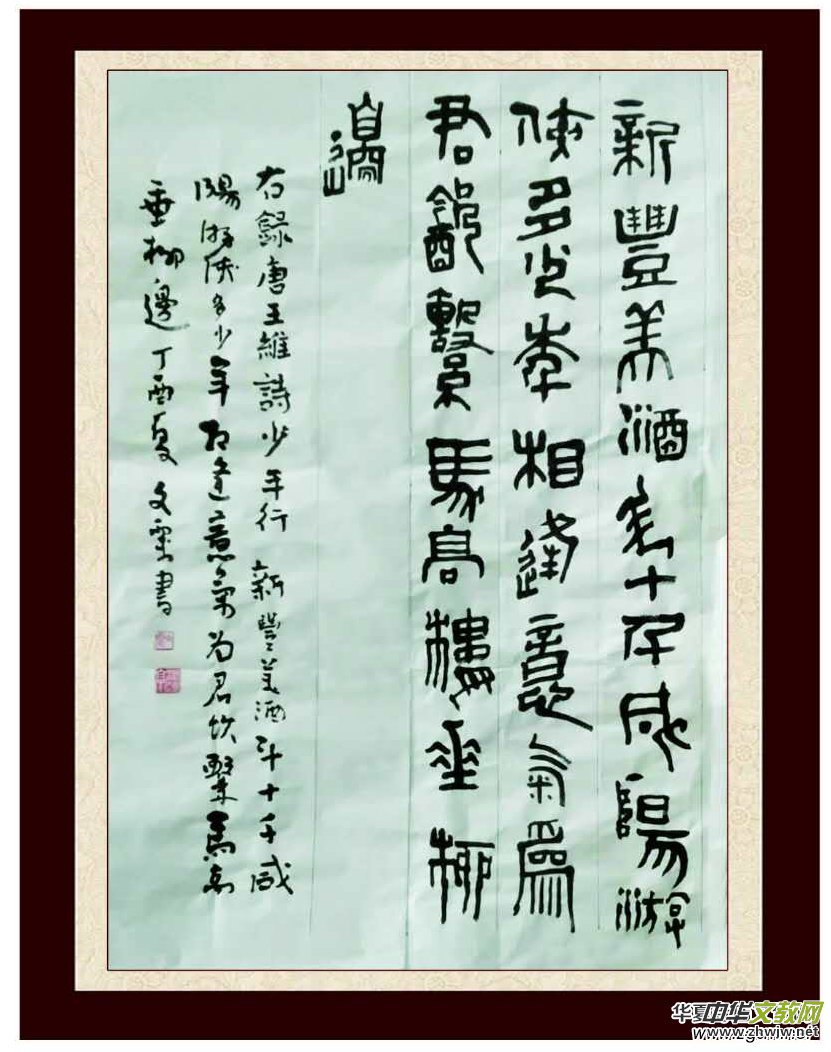 新豐美酒斗十千咸陽游
俠多少年相逢意氣爲
君飲繫馬高樓垂柳
邊
右錄唐王維詩少年行 新豐美酒斗十千咸
陽游俠多少年相逢意氣为君飲繫馬高
垂柳邊 丁酉夏 文書
华夏中华文教网
www.zhwjw.net